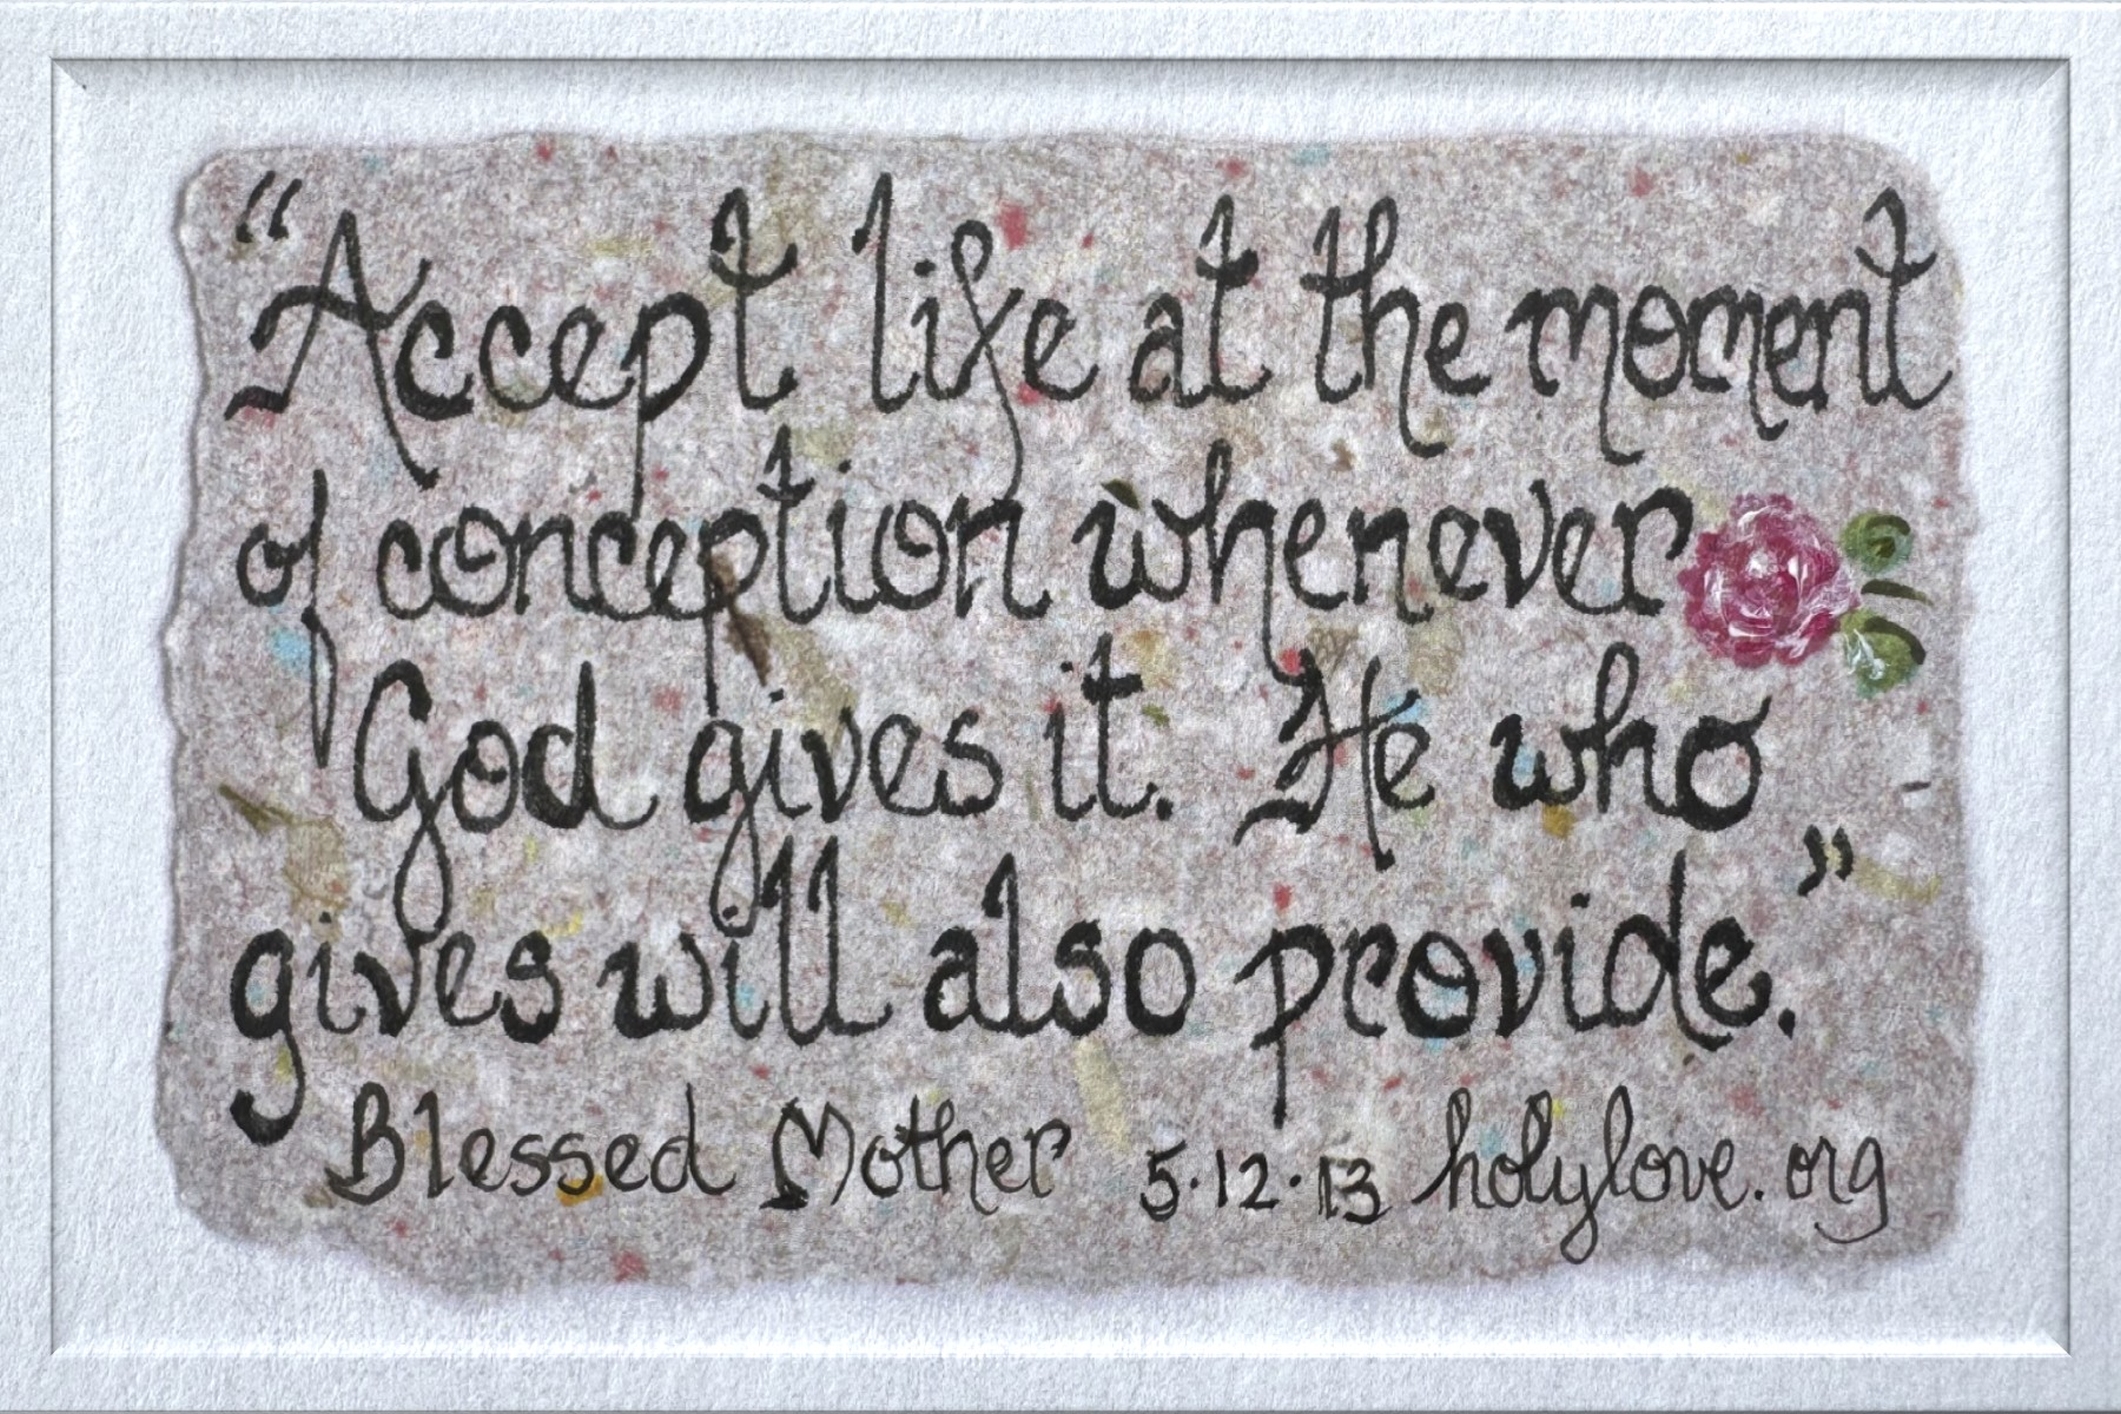 “Accept life at the moment
of conception whenever
God gives it. He who
gives will also provide.”
Blessed Mother 5·12·13 holylove.org